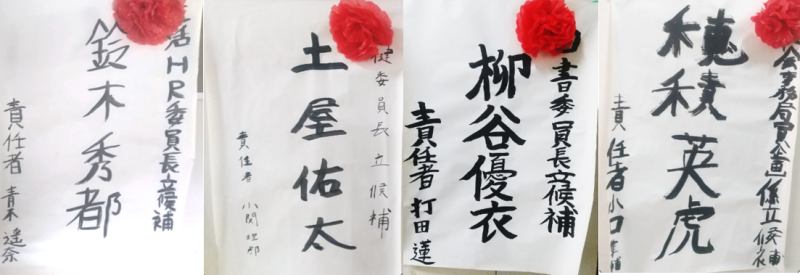 活HR委員長立候補
鈴木秀都
責任者 青木遥奈
健委員長立候補
土屋佑太
責任者 小関
書委員長立候補
柳谷優衣
責任者 打田蓮
会事務局員企画係立候補
穂積英虎
責任者 小口